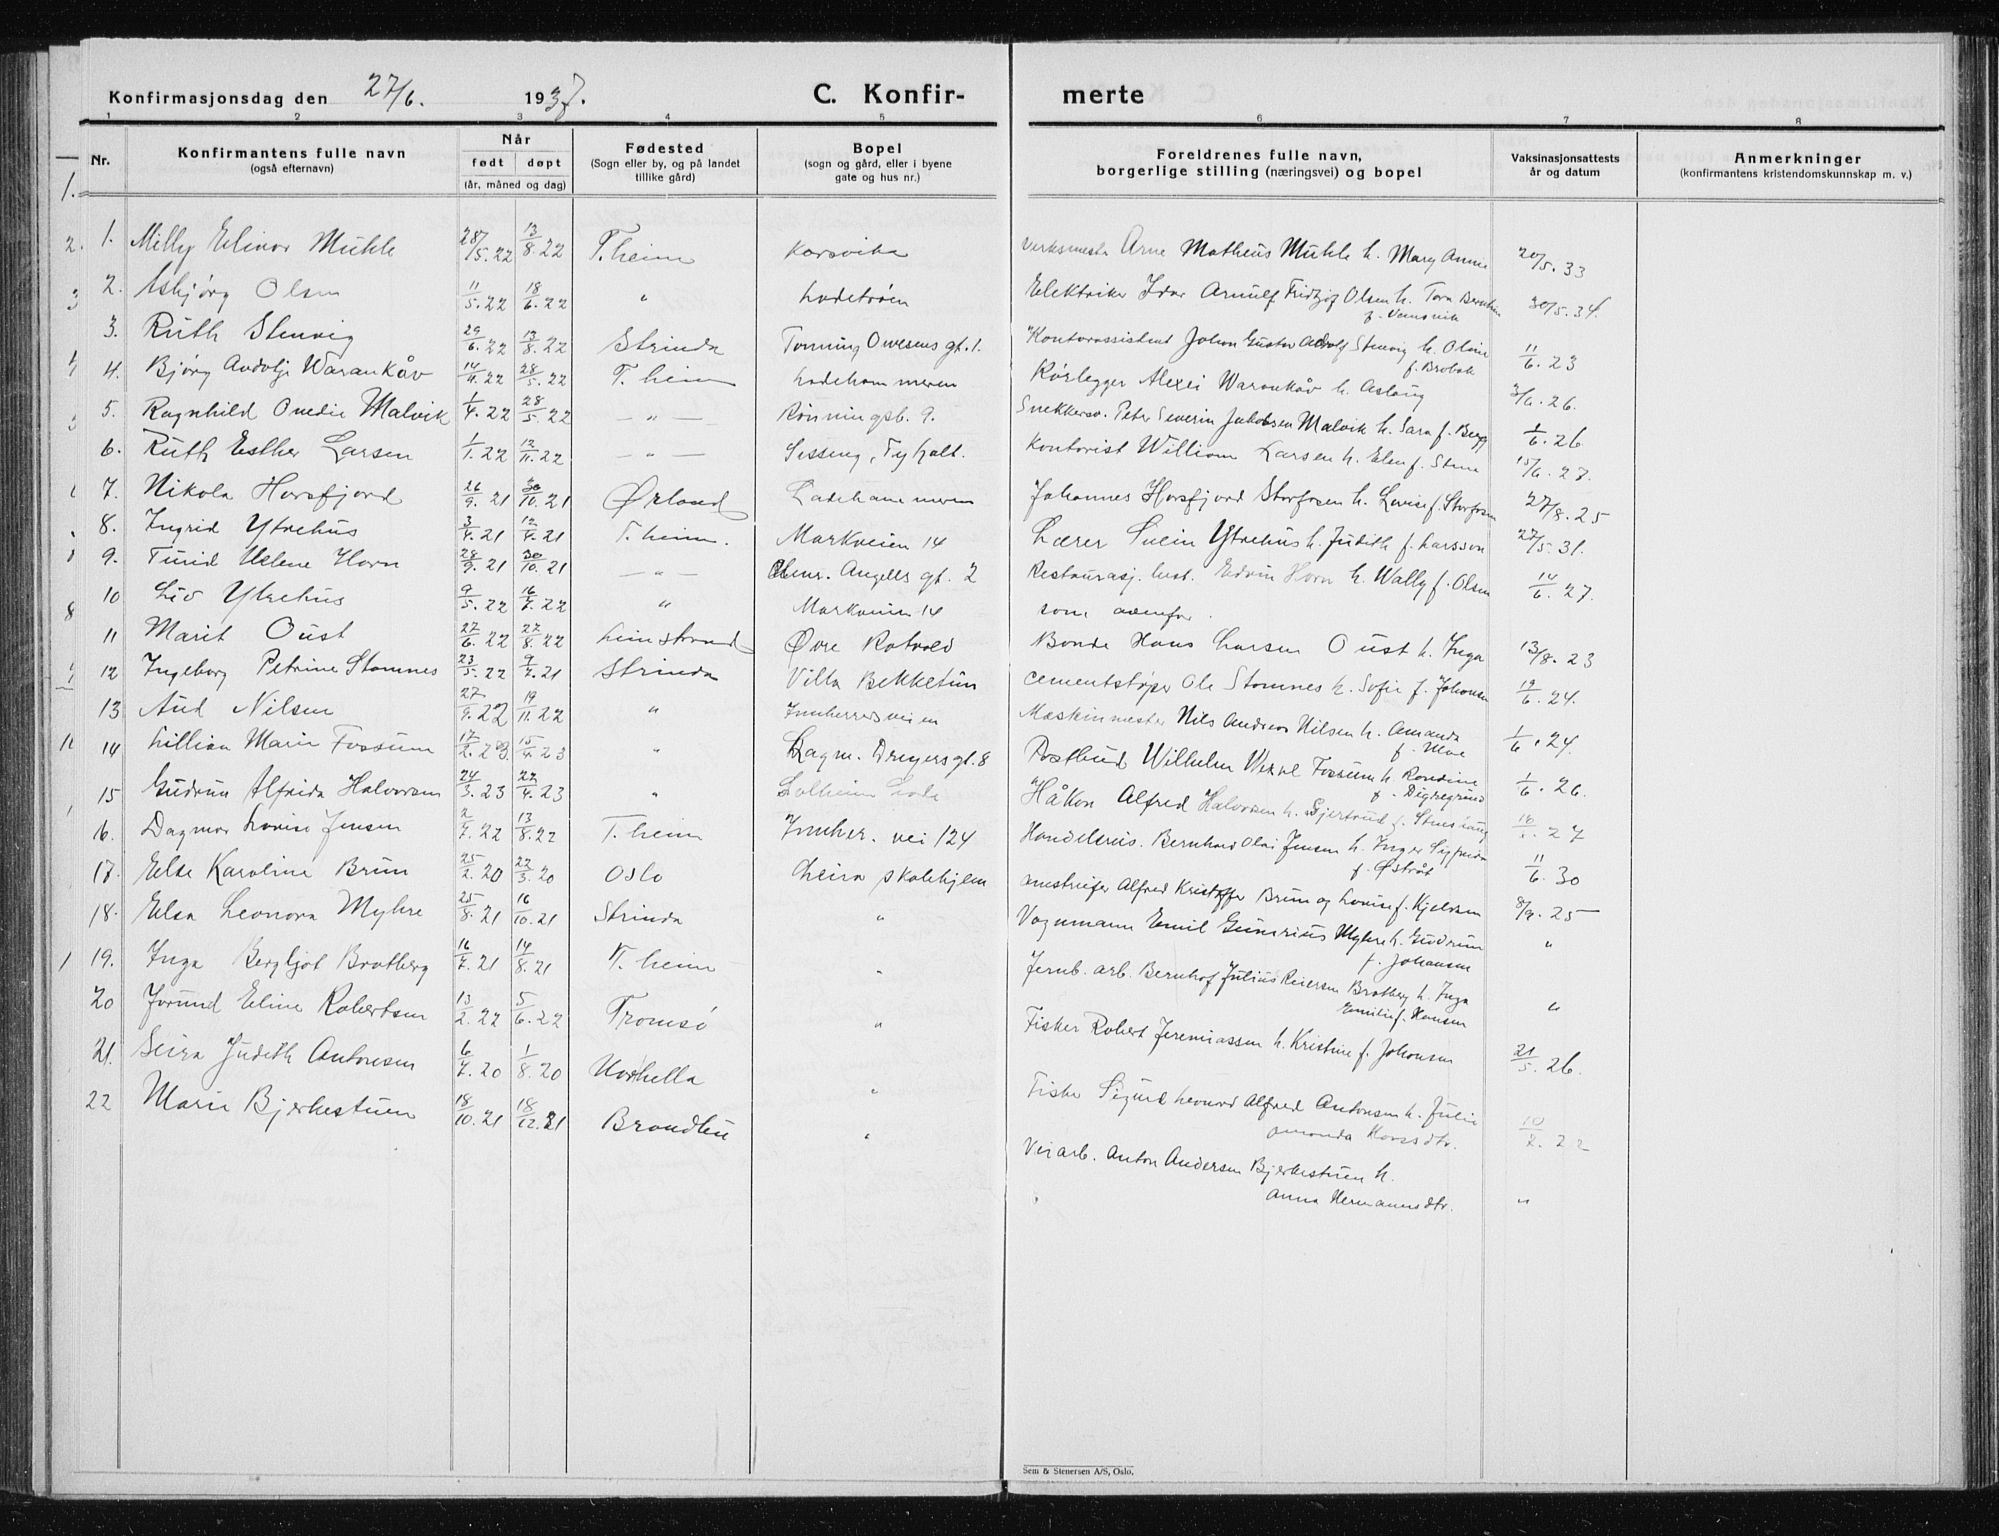 Konfirmasjonsdag den 27/6. 1937. C. Konfir-
merte
1 2 3 4 5 6 7 8
Nr. Konfirmantens fulle navn (også efternavn) Når født døpt (år, måned og dag) Fødested (Sogn eller by, og på landet tillike gård) Bopel (sogn og gård, eller i byene gate og hus nr.)
Foreldrenes fulle navn, borgerlige stilling (næringsvei) og bopel Vaksinasjonsattests år og datum Anmerkninger (konfirmantens kristendomskunnskap m. v.)
1. Milly Elinor Muhle 28/5.22 13/8.22 T.heim Korsvika Verksmester Arne Matheus Muhle h. Mary Annie 20/5.33
2. Asbjørg Olsen 11/5.22 18/6.22 " Ladetrøen Elektriker Idar Arnulf Fridtjof Olsen h. Tora 30/5.34.
f. Vemsvik
3. Ruth Stenvig 29/6.22 13/8.22 Strinda Tonning Owesens gt. 1. Kontorassistent Johan Gustav Adolf Stenvig h. Oline 11/6.23
f. Brobak
4. Bjørg Andotje Warankåv 14/4.22 28/5.22 T.heim Ladehammeren Rørlegger Alexei Warankåv h. Aslaug 3/6.26.
5. Ragnhild Onedie Malvik 1/4.22 28/5.22 — " — Rønningsb. 9. Snekkersv. Peter Severin Jakobsen Malvik h. Sara f. Berg 1/6.26
6. Ruth Esther Larsen 1/1.22 12/11.22 — " — Tyholt. Kontorist William Larsen h. Elen f. Stene 15/6.27.
7. Nikola Horsfjord 26/9.21 30/10.21 Ørland Ladehammeren Johannes Horsfjord Storfosen h. Lovise f. Storfosen 27/8.25
8. Ingrid Ytrehus 3/4.21 12/4.21 T.heim. Markveien 14 Lærer Svein Ytrehus h. Judith f. Larsson 27/5.31.
9. Turid Helene Horn 28/9.21 30/10.21 — " — Chr. Angells gt. 2 Restaurasj. best. Edvin Horn h. Wally f. Olsen 14/6.27.
10 Liv Ytrehus 9/5.22 16/7.22 " Markveien 14 som ovenfor.
11 Marit Oust 27/6.22 27/8.22 Leinstrand Øvre Rotvold Bonde Hans Larsen Oust h. Inga 13/8.23
12 Ingeborg Petrine Stamnes 23/5.22 9/7.21 Strinda Villa Bekketun Cementstøper Ole Stamnes h. Sofie f. Johansen 19/6.24.
13 Aud Nilsen 27/9.22 19/11.22 " Innherredsveien Maskinmester Nils Andreas Nilsen h. Amanda 1/6.24.
f. Moe
14 Lillian Marie Fossum 17/2.23. 15/4.23 " Lagm. Dreyers gt. 8 Postbud Wilhelm Fossum h. Rondine 1/6.26.
f. Digregrind
15 Gudrun Alfrida Halvorsen 24/3.23 22/4.23 " Solheim Lade Håkon Alfred Halvorsen h. Gjertrud f. 18/ .27
16. Dagmar Lovise Jensen 2/7.22 13/8.22 T.heim Innher. vei 124 Handelsreis. Bernhard Olai Jensen h. Inger Sigfrida 11/6.30
f. Østråt
17. Else Karoline Brun 25/2.20 22/3.20 Oslo Leira skolehjem Alfred Kristoffer Brun og Lovise f. Kjeldsen 8/9.25
18. Elsa Leonora Myhre 25/8.21 16/10.21 Strinda " Vognmann Emil Gunerius Myhre h. Gudrun "
f. Johansen
19. Inga Bergljot Bratberg 16/7.21 14/8.21 T.heim " Jernb. arb. Bernhof Julius Reiersen Bratberg h. Inga "
Emilie f. Hansen
20 Jorund Eline Robertsen 13/2.22 5/6.22 Tromsø " Fisker Robert Jeremiassen h. Kristine f. Johansen 21/5.26.
21. Seira Judith Antonsen 6/7.20 1/8.20 " Fisker Sigurd Leonard Alfred Antonsen h. Julie 10/2.22
Amanda Hansdtr.
22 Marie Bjerkestuen 18/10.21 18/12.21 Brandbu " Veiarb. Anton Andersen Bjerkestuen h.
Anna Hermannsdtr. "
Sem & Stenersen A/S, Oslo.